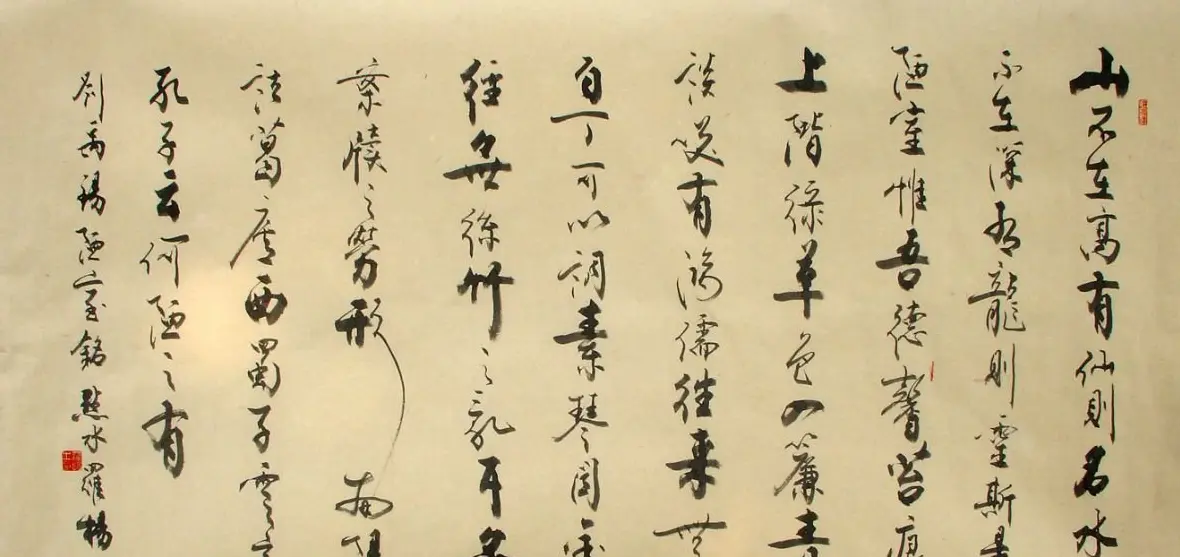 山不在高有仙則名水
不在深有龍則靈斯是
陋室惟吾德馨苔痕
上階綠草色入簾青
談笑有鴻儒往来無
白丁可以調素琴閱金
經無絲竹之乱耳無
案牘之勞形南陽
諸葛廬西蜀子雲之
孔子云何陋之有
劉禹錫陋室銘 點水羅楊